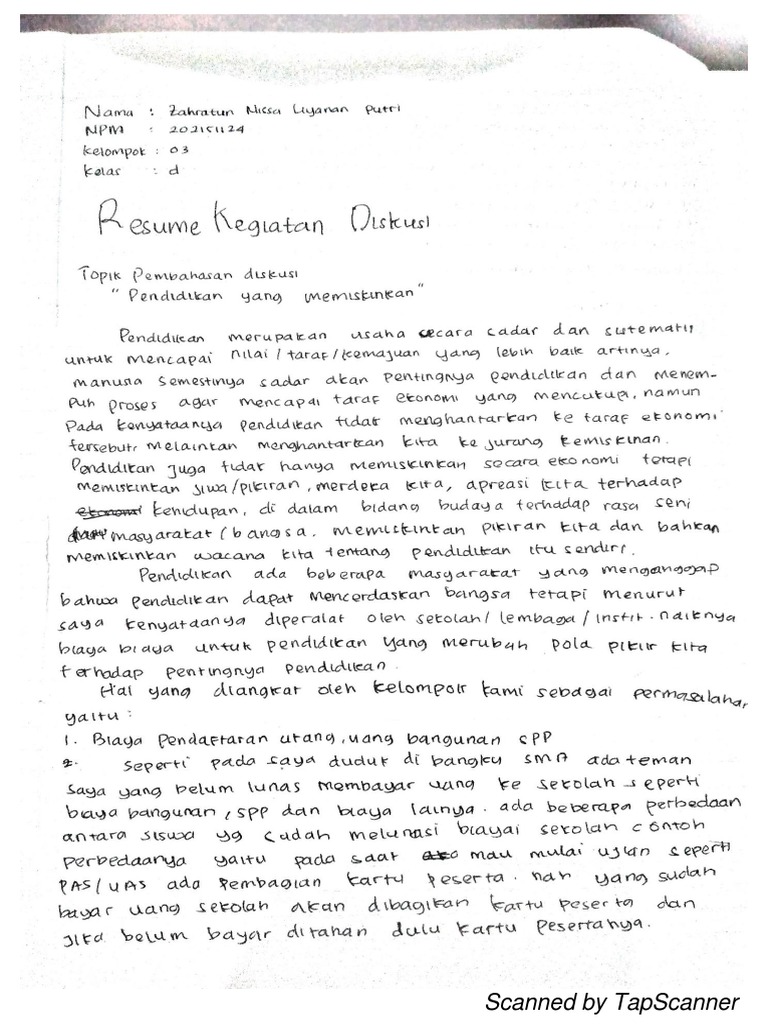 Nama : Zahratun Nissa Liyanan Putri
NPM : 202151124
Kelompok : 03
Kelas : d
Resume Kegiatan Diskusi
Topik Pembahasan diskusi
" Pendidikan yang memiskinkan"
Pendidikan merupakan usaha secara sadar dan sistematis
untuk mencapai nilai/taraf/kemajuan yang lebih baik artinya,
manusa semestinya sadar akan pentingnya pendidikan dan menem-
puh proses agar mencapai taraf ekonomi yang mencukupi, namun
pada kenyataanya pendidikan tidak menghantarkan ke taraf ekonomi
tersebut, melainkan menghantarkan kita ke jurang kemiskinan.
Pendidikan juga tidak hanya memiskinkan secara ekonomi tetapi
memiskinkan jiwa/pikiran, merdeka kita, apreasi kita terhadap
kehidupan, di dalam bidang budaya terhadap rasa seni
masyarakat/bangsa. memiskinkan pikiran kita dan bahkan
memiskinkan wacana kita tentang pendidikan itu sendiri.
Pendidikan ada beberapa masyarakat yang menganggap
bahwa pendidikan dapat mencerdaskan bangsa tetapi menurut
saya kenyataanya diperalat oleh sekolah/lembaga/instit. naiknya
biaya biaya untuk pendidikan yang merubah pola pikir kita
terhadap pentingnya pendidikan.
Hal yang diangkat oleh kelompok kami sebagai permasalahan
yaitu :
1. Biaya Pendaftaran utang, uang bangunan SPP
2. Seperti pada saya duduk di bangku SMA ada teman
saya yang belum lunas membayar uang ke sekolah seperti
biaya bangunan, spp dan biaya lainya. ada beberapa perbedaan
antara siswa yg sudah melunasi biayai sekolah contoh
perbedaanya yaitu pada saat mau mulai ujian seperti
PAS/UAS ada pembagian kartu peserta. nah yang sudah
bayar uang sekolah akan dibagikan kartu peserta dan
jika belum bayar ditahan dulu kartu pesertanya.
Scanned by TapScanner